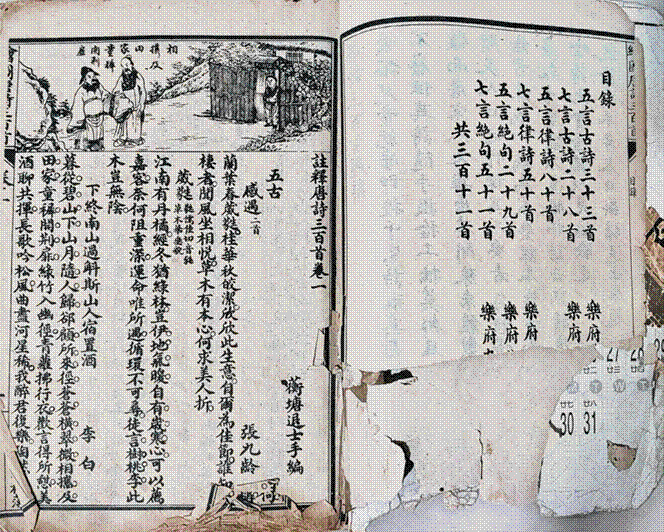 目錄
五言古詩三十三首 樂府
七言古詩二十八首 樂府
五言律詩八十首
七言律詩五十首 樂府
五言絕句二十九首 樂府
七言絕句五十一首 樂府
共三百十一首
相攜及田家童稚開荊扉
註釋唐詩三百首卷一
蘅塘退士手編
五古
感遇二首
張九齡
蘭葉春葳蕤桂華秋皎潔欣欣此生意自爾為佳節誰知
棲者聞風坐相悅草木有本心何求美人折
江南有丹橘經冬猶綠林豈伊地氣暖自有歲寒心可以薦
嘉客奈何阻重深運命唯所遇循環不可尋徒言樹桃李此
木豈無陰
下終南山過斛斯山人宿置酒
李白
暮從碧山下山月隨人歸卻顧所來徑蒼蒼橫翠微相攜及
田家童稚開荊扉綠竹入幽徑青蘿拂行衣歡言得所憩美
酒聊共揮長歌吟松風曲盡河星稀我醉君復樂陶
卷一
27
28
29
T
W
T
30
31